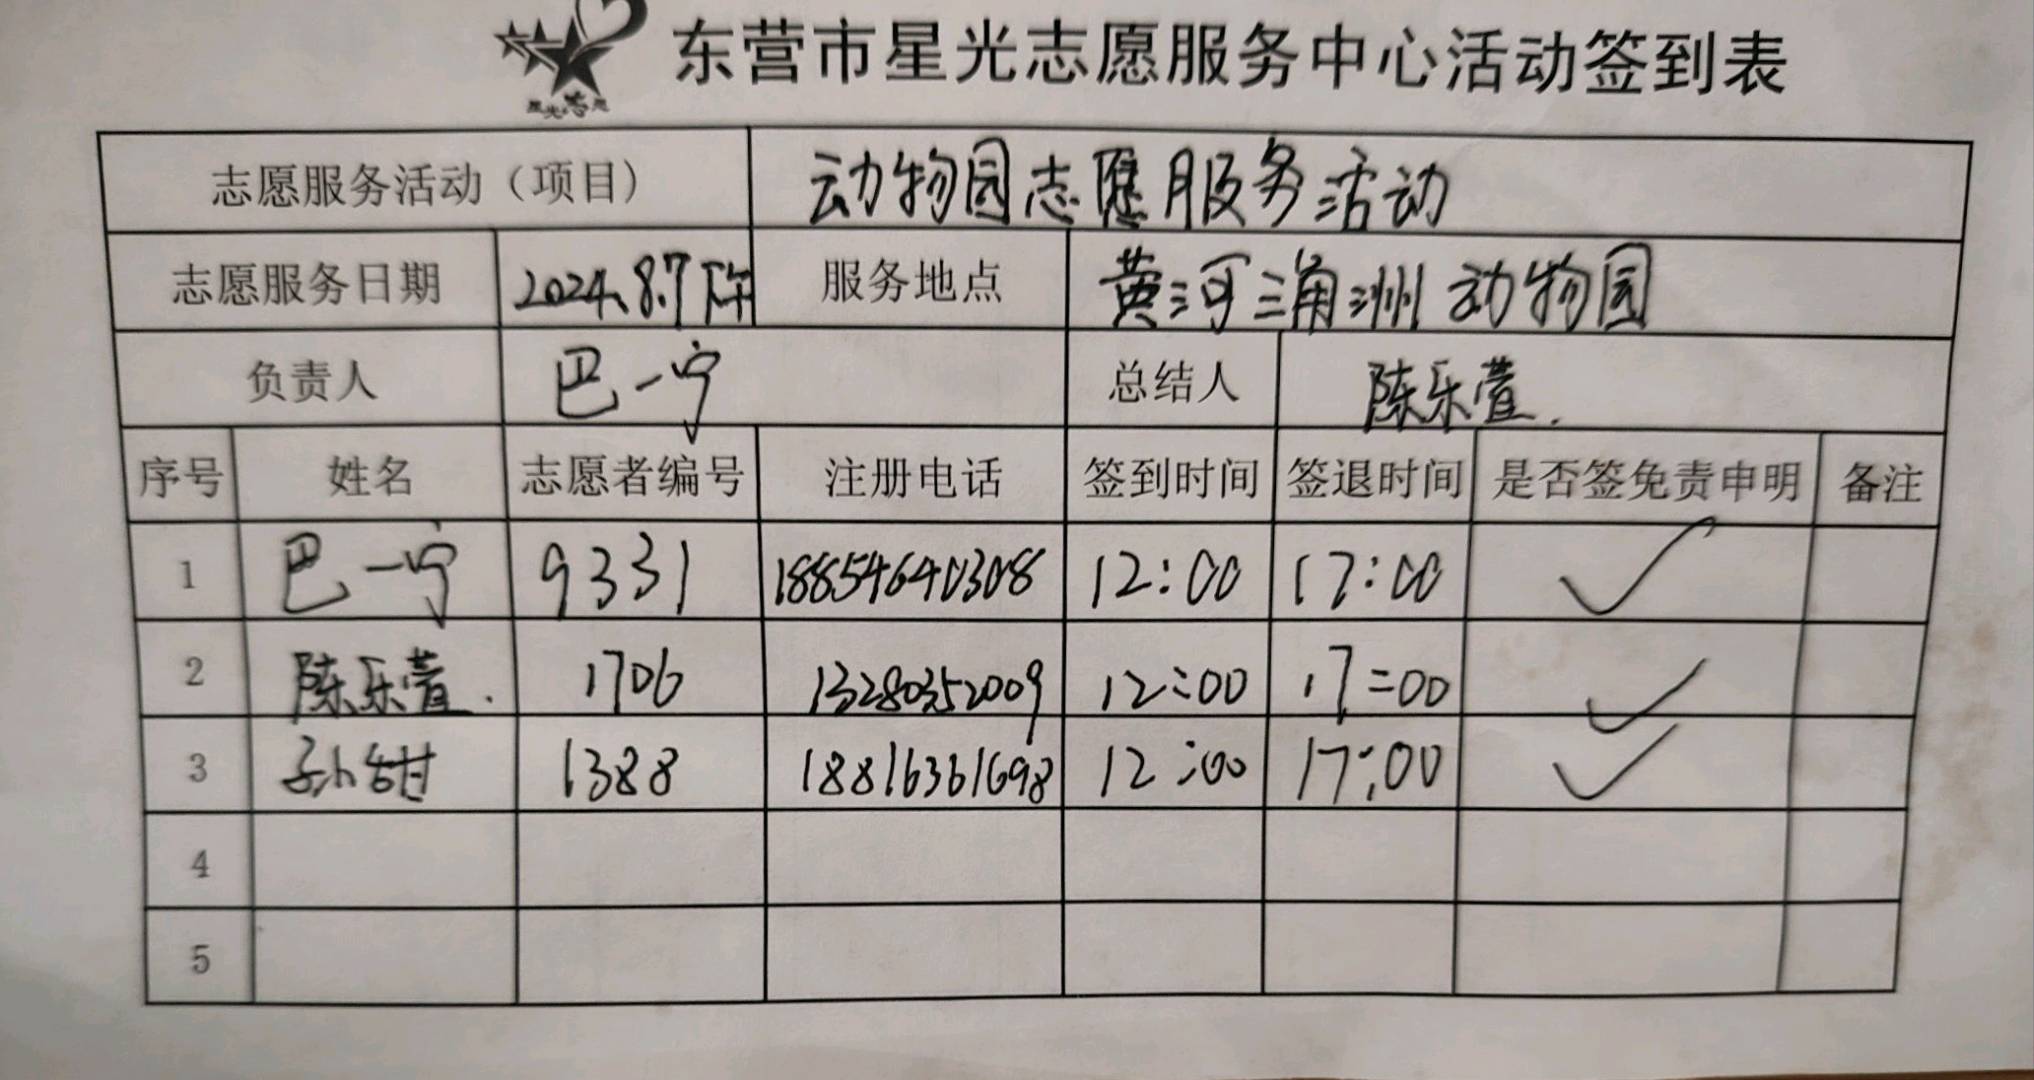 星光志愿
东营市星光志愿服务中心活动签到表
志愿服务活动（项目） 动物园志愿服务活动
志愿服务日期 2024.8.7下午 服务地点 黄河三角洲动物园
负责人 巴一宁 总结人 陈乐萱.
序号 姓名 志愿者编号 注册电话 签到时间 签退时间 是否签免责申明 备注
1 巴一宁 9331 18854640308 12:00 17:00 ✓
2 陈乐萱. 1706 13280352009 12:00 17:00 ✓
3 1388 18816361698 12:00 17:00 ✓
4
5